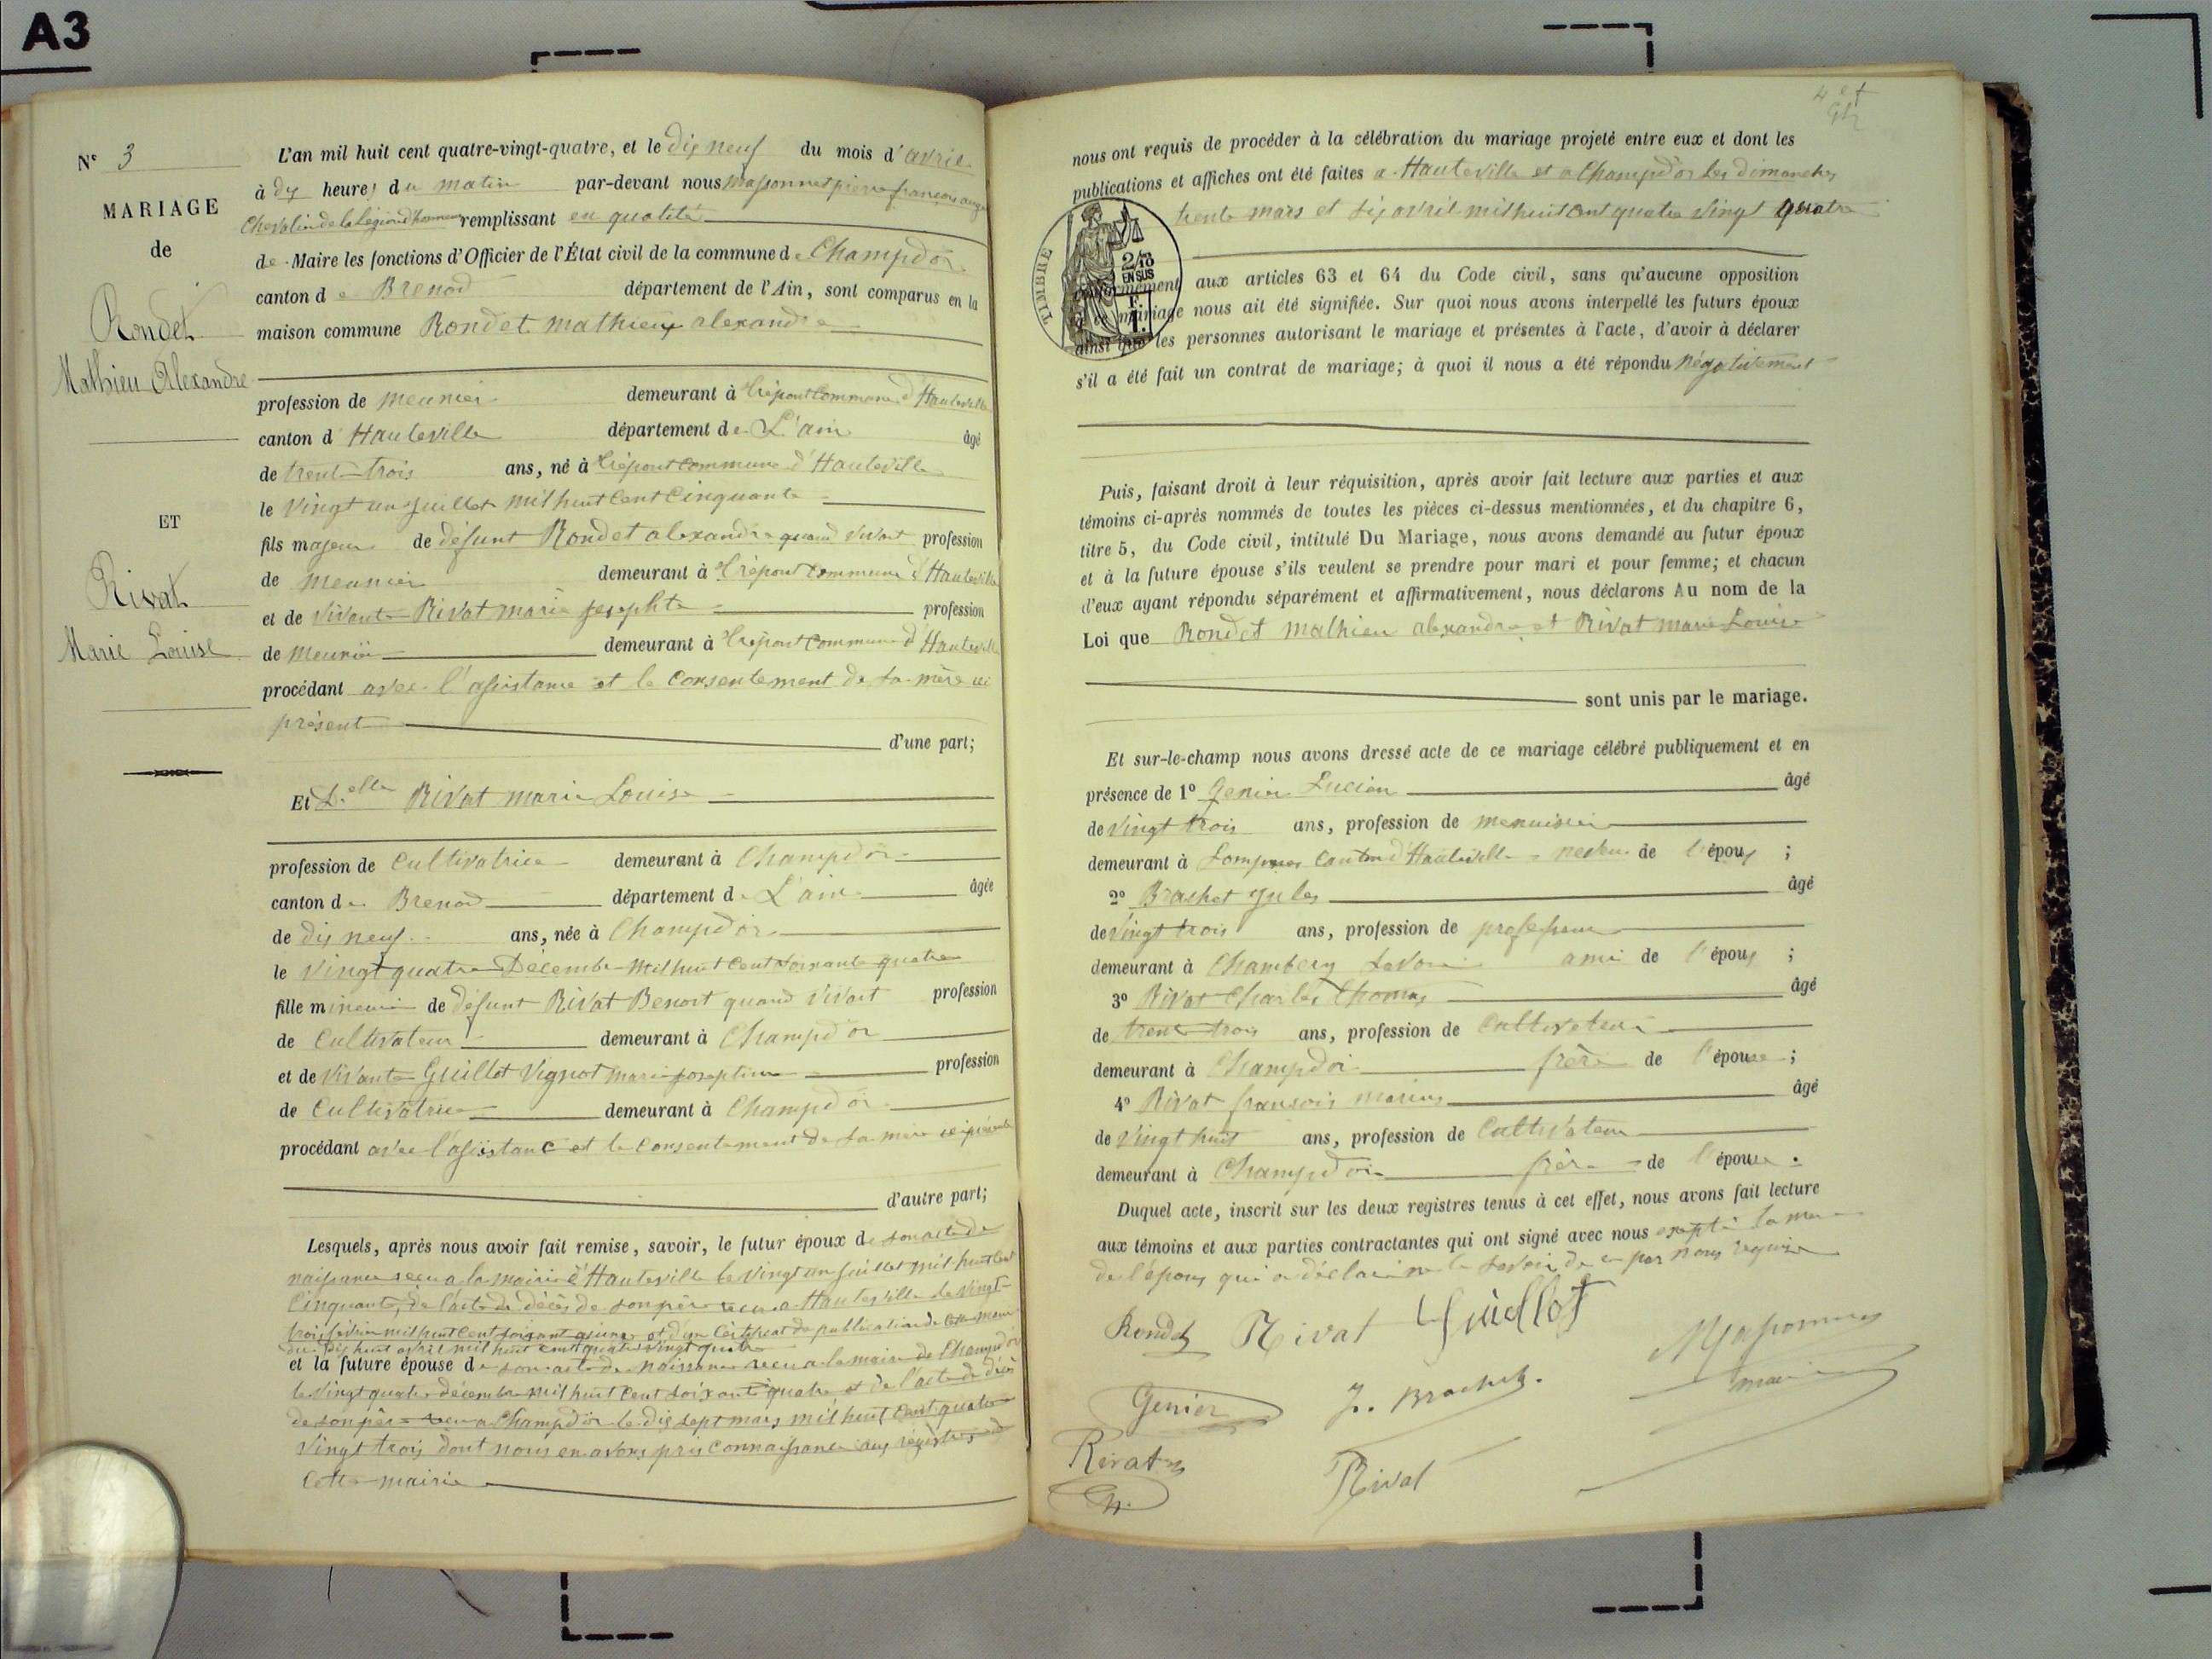 A3
N° 3
MARIAGE
de
Rondet
Mathieu Alexandre
ET
Rivat
Marie Louise
L'an mil huit cent quatre-vingt-quatre, et le dix neuf du mois d'avril
à dix heures du matin par-devant nous Massonnet pierre françois
Chevalier de la Légion d'honneur remplissant en qualité
de Maire les fonctions d'Officier de l'État civil de la commune de Champdor
canton de Brenod département de l'Ain, sont comparus en la
maison commune Rondet mathieu alexandre
profession de meunier demeurant à trépont Commune d'Hauteville
canton d'Hauteville département de L'ain âgé
de trent-trois ans, né à trépont commune d'Hauteville
le vingt un juillet mil huit Cent Cinquante
fils majeur de défunt Rondet alexandre quand vivant profession
de meunier demeurant à trépont commune d'Hauteville
et de vivante Rivat marie josephte profession
de meunier demeurant à trépont commune d'Hauteville
procédant avec l'assistance et le consentement de sa mère ici
présent d'une part;
Et D.elle Rivat marie Louise
profession de Cultivatrice demeurant à Champdor
canton de Brenod département de L'ain âgée
de dix neuf ans, née à Champdor
le vingt quatre Décembre mil huit cent soixante quatre
fille mineure de défunt Rivat Benoit quand vivait profession
de Cultivateur demeurant à Champdor
et de vivante Guillot Vignot marie josephine profession
de Cultivatrice demeurant à Champdor
procédant avec l'assistance et le consentement de sa mère ici présente
d'autre part;
Lesquels, après nous avoir fait remise, savoir, le futur époux de son acte de
naissance reçu a la mairie d'Hauteville le vingt un juillet mil huit cent
Cinquante, de l'acte de décès de son père reçu a Hauteville le vingt-
trois mil huit cent soixant et d'un Certificat de publication de
du dix huit avril mil huit cent quatre vingt quatre
et la future épouse de son acte de naissance reçu a la mairie de Champdor
le vingt quatre décembre mil huit cent soixante quatre et de l'acte de décès
de son père reçu a Champdor le dix sept mars mil huit cent quatre
vingt trois dont nous en avons pris connaissance aux registres de
cette mairie
nous ont requis de procéder à la célébration du mariage projeté entre eux et dont les
publications et affiches ont été faites a Hauteville et a Champdor les dimanches
trente mars et six avril mil huit cent quatre vingt quatre
TIMBRE
2/10
EN SUS
F.
1.
conformément aux articles 63 et 64 du Code civil, sans qu'aucune opposition
à ce mariage nous ait été signifiée. Sur quoi nous avons interpellé les futurs époux
ainsi que les personnes autorisant le mariage et présentes à l'acte, d'avoir à déclarer
s'il a été fait un contrat de mariage; à quoi il nous a été répondu négativement
Puis, faisant droit à leur réquisition, après avoir fait lecture aux parties et aux
témoins ci-après nommés de toutes les pièces ci-dessus mentionnées, et du chapitre 6,
titre 5, du Code civil, intitulé Du Mariage, nous avons demandé au futur époux
et à la future épouse s'ils veulent se prendre pour mari et pour femme; et chacun
d'eux ayant répondu séparément et affirmativement, nous déclarons Au nom de la
Loi que Rondet mathieu alexandre et Rivat marie Louise
sont unis par le mariage.
Et sur-le-champ nous avons dressé acte de ce mariage célébré publiquement et en
présence de 1° Genier Lucien âgé
de vingt trois ans, profession de menuisier
demeurant à Lompnes Canton d'Hauteville neveu de l'époux ;
2° Brachet jules âgé
de vingt trois ans, profession de professeur
demeurant à Chambery Savoie ami de l'époux ;
3° Rivat Charles Thomas âgé
de trent trois ans, profession de Cultivateur
demeurant à Champdor frère de l'épouse ;
4° Rivat fransois marius âgé
de vingt huit ans, profession de Cultivateur
demeurant à Champdor frère de l'épouse .
Duquel acte, inscrit sur les deux registres tenus à cet effet, nous avons fait lecture
aux témoins et aux parties contractantes qui ont signé avec nous excepté la mère
de l'époux qui a déclaré ne le savoir de ce par nous requise
Rondet Rivat Guillot
Massonnet
maire
Genier J. Brachet.
Rivat
Rivat